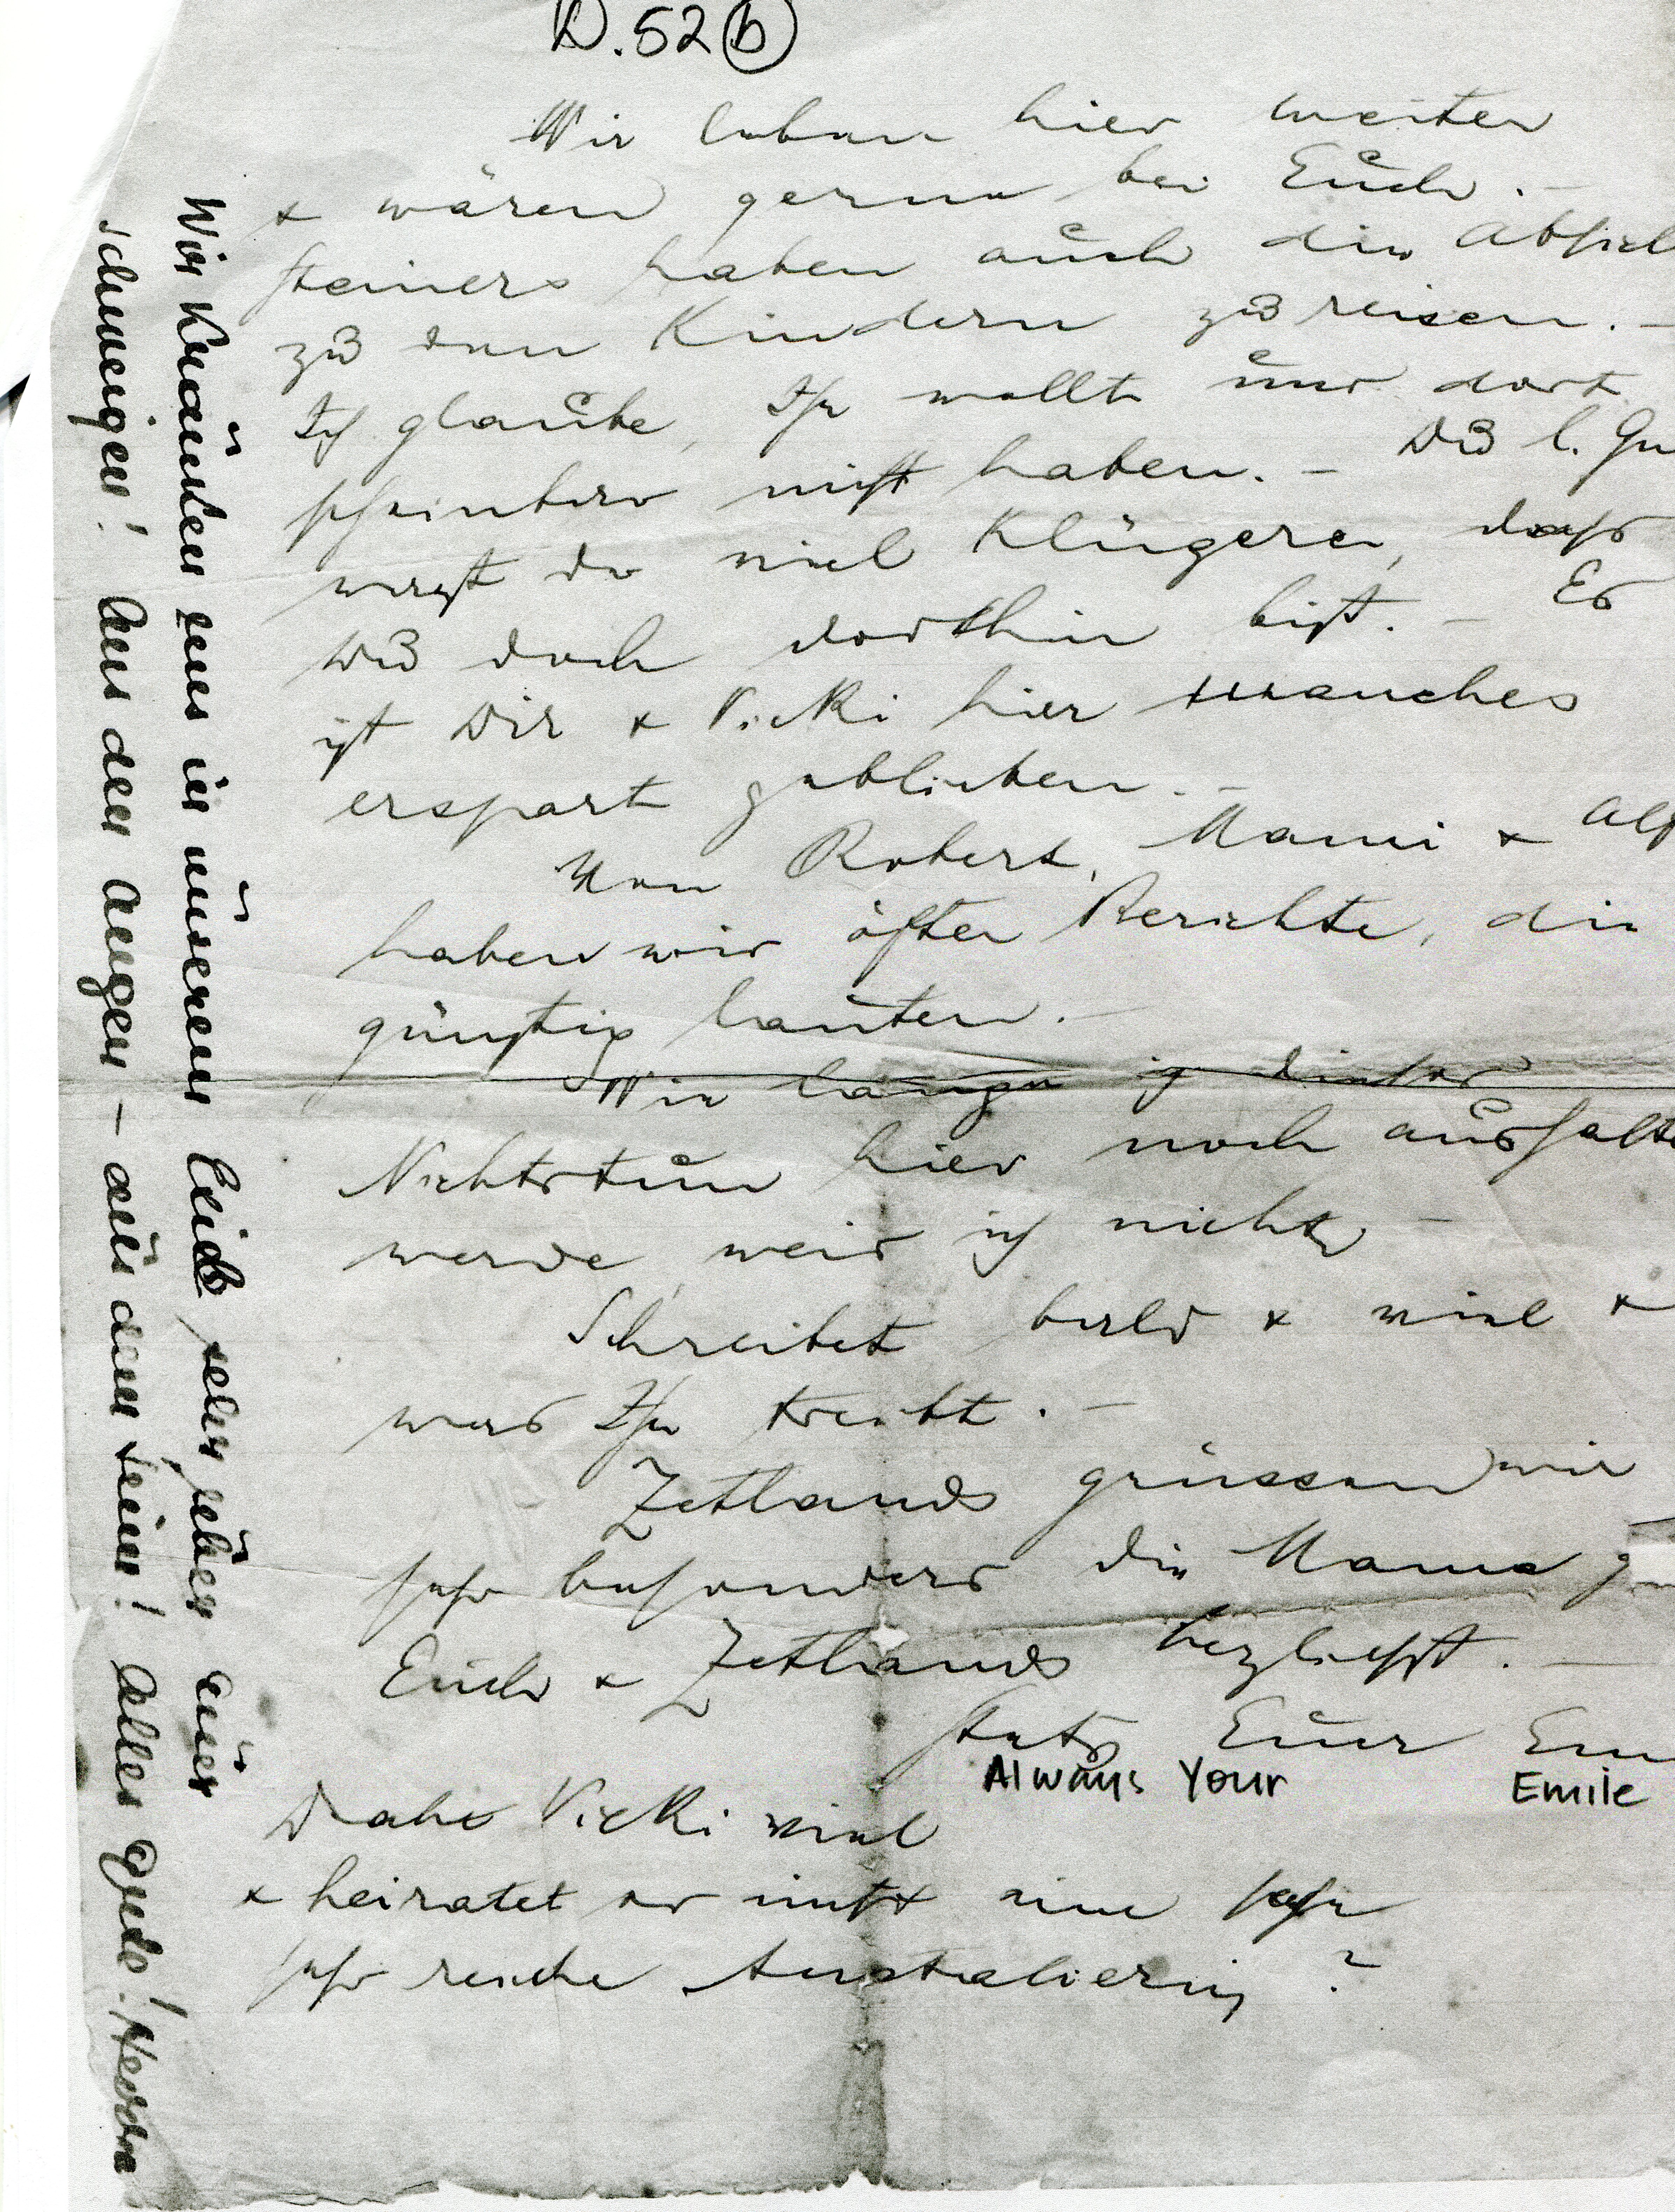 D.52 b
Wir leben hier weiter
& wären gerne bei Euch. -
Steiners haben auch die Absich
zu den Kindern zu reisen. -
Ich glaube, Ihr wollt uns dort
scheinbar nicht haben. - Du l. Gu
warst da viel klüger, dass
Du doch dorthin bist. - Es
ist Dir & Vicki hier manches
erspart geblieben. -
Von Robert, Mami & Alf
haben wir öfter Berichte, die
günstig lauten. -
Wie lange ich dieses
Nichtstun hier noch aushalte
werde, weis ich nicht. -
Schreibet bald & viel &
was Ihr treibt. -
Zetlands grüssen wir
sehr besonders die Mama g
Euch & Zetlands herzlichst. -
Stets Euer Em
Always Your Emile
Vicki viel
& heiratet er nicht eine sehr
sehr reiche Australierin ?
Wir kränken uns in unserem Leid sehr über Euer
Schweigen! Aus den Augen - aus dem Sinn! Alles Gute! Hertha